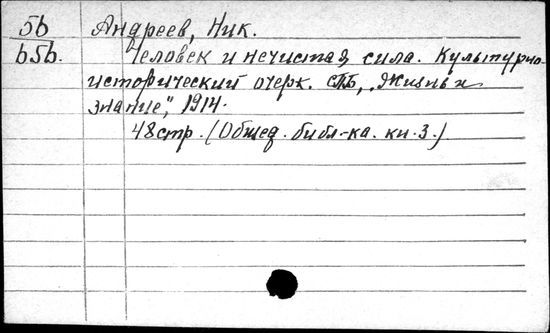 5b Андреев, Ник.
b5b. Человек и нечистая сила. Культурно-
исторический очерк. СПБ, „Жизнь и
знание", 1914.
48стр. (Общед. библ-ка. кн. 3.)